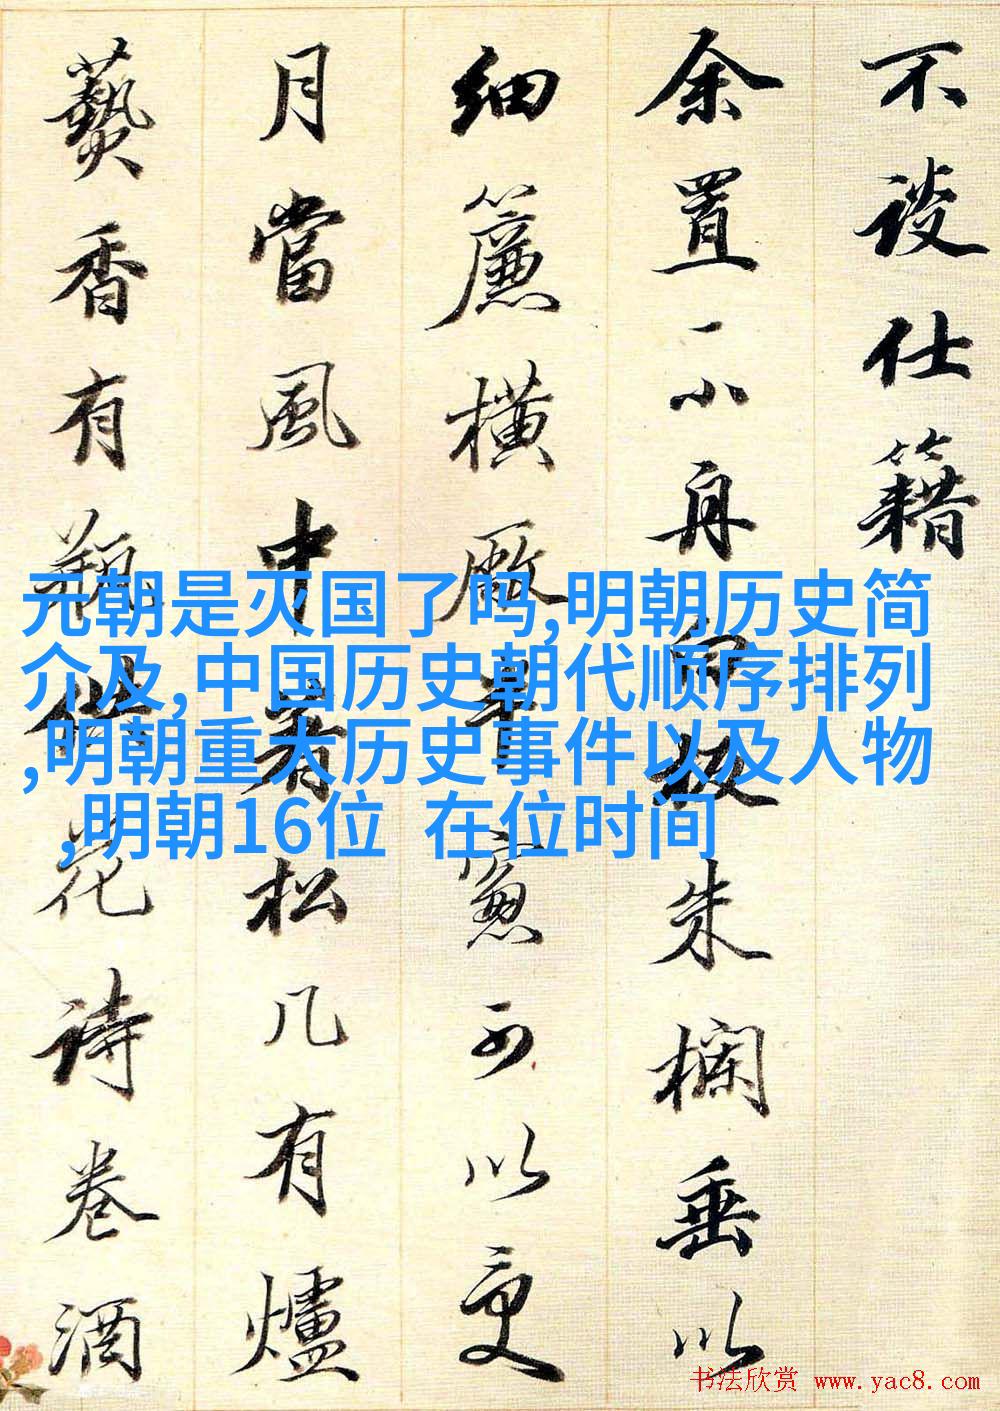 不談仕籍
余置一小舟白板朱欄垂以
細簾橫廠半窻可以受
月當風中着松几有爐
爇香有瓶供花詩卷酒
元朝是灭国了吗,明朝历史简
介及,中国历史朝代顺序排列
,明朝重大历史事件以及人物
,明朝16位 在位时间
书法欣赏 www.yac8.com